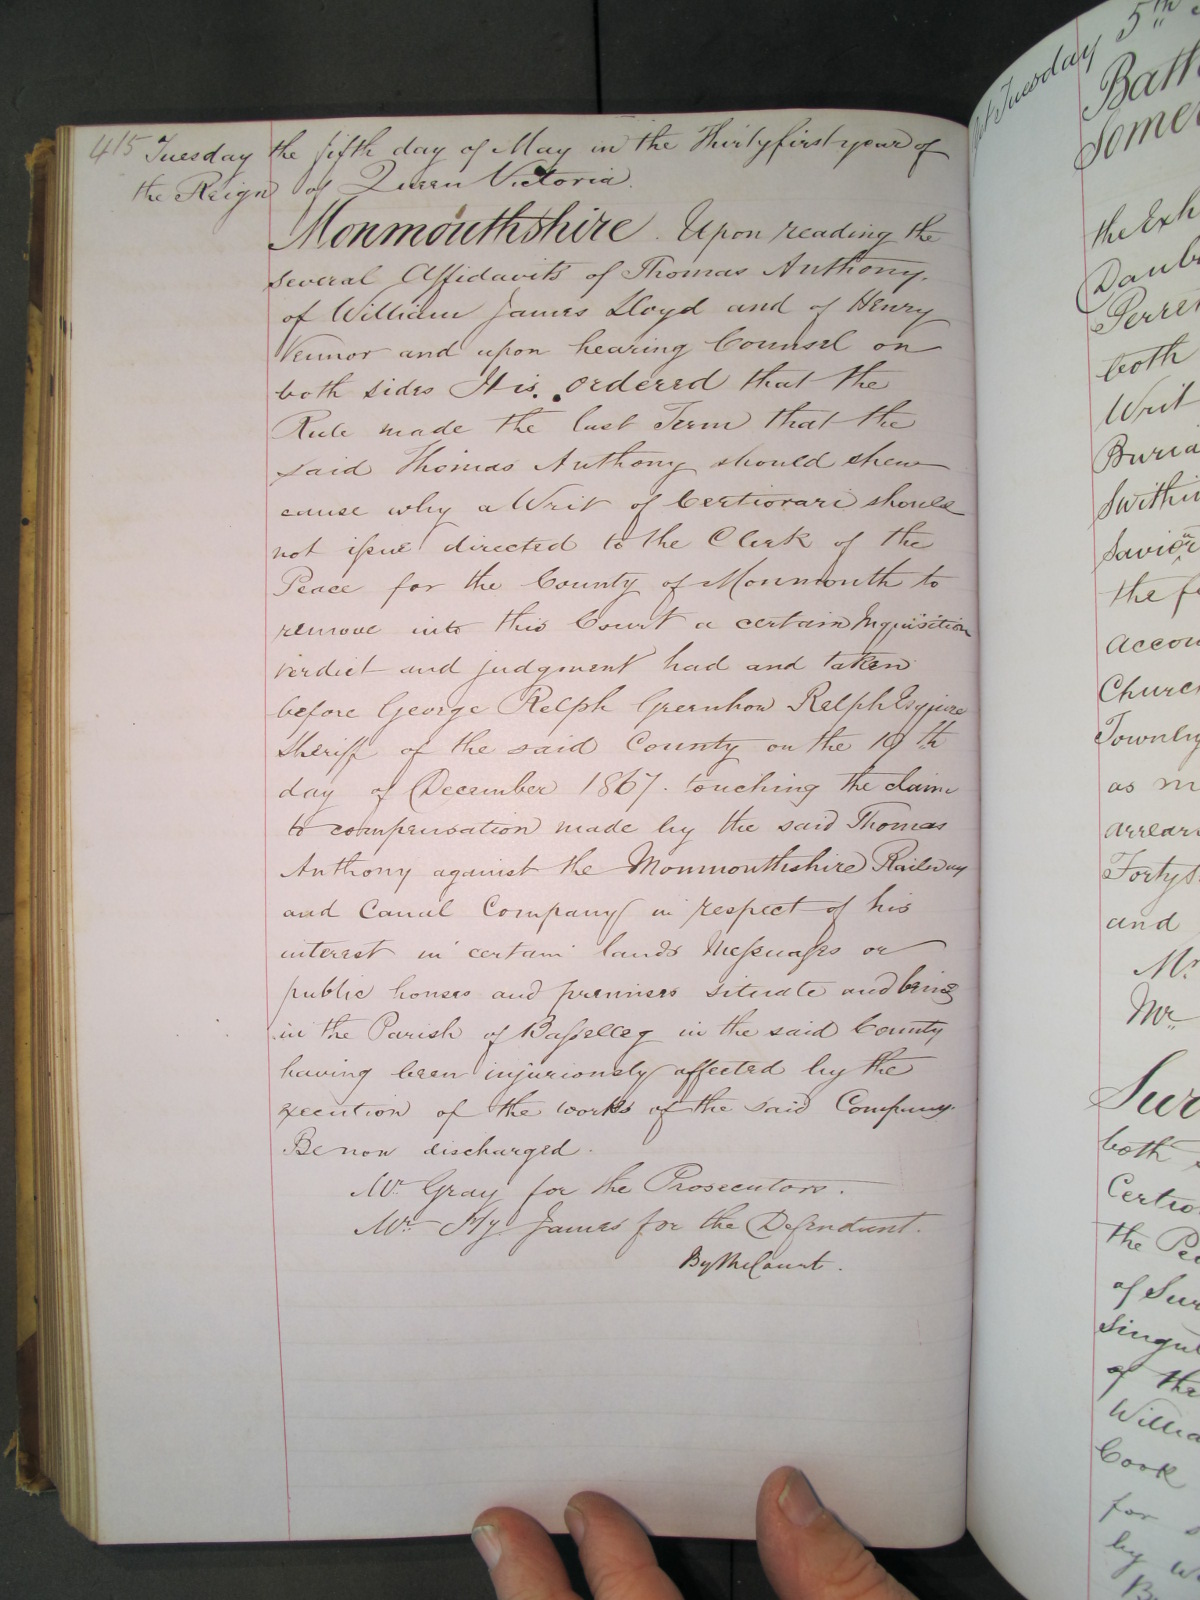 415 Tuesday the fifth day of May in the Thirtyfirst year of
the Reign of Queen Victoria.
Monmouthshire. Upon reading the
several Affidavits of Thomas Anthony,
of William James Lloyd and of Henry
Vennor and upon hearing Counsel on
both sides It is. ordered that the
Rule made the last Term that the
said Thomas Anthony should shew
cause why a Writ of Certiorari should
not issue directed to the Clerk of the
Peace for the County of Monmouth to
remove into this Court a certain Inquisition
verdict and judgment had and taken
before George Relph Greenhow Relph Esquire
Sheriff of the said County on the 19th
day of December 1867. touching the claim
to compensation made by the said Thomas
Anthony against the Monmouthshire Railway
and Canal Company in respect of his
interest in certain lands Messuages or
public houses and premises situate and being
in the Parish of Basselleg in the said County
having been injuriously affected by the
execution of the works of the said Company.
Be now discharged.
Mr. Gray for the Prosecutors.
Mr. Hy James for the Defendant.
By the Court.
Tuesday 5th
Somer
the Exh
Daub
both
Writ
Buria
Swithin
Savior
the
accou
Church
Townley
as m
arrears
Forty
and
Mr.
Mr.
Sur
both
Certio
the Pea
of Surr
Singul
of the
Willia
Cook
for
by